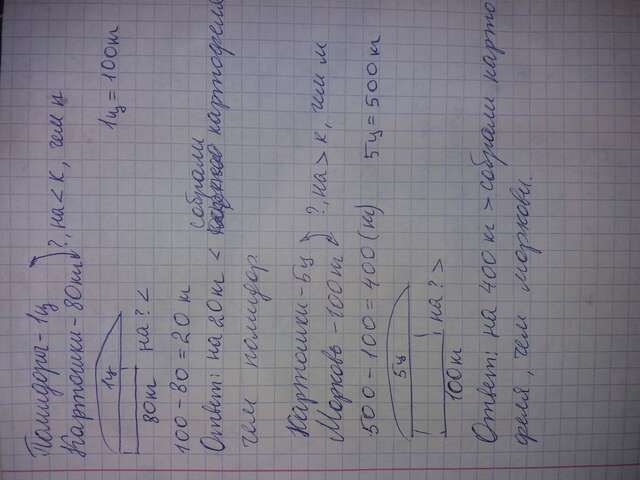 Помидоры - 1ц
Картошки - 80кг ) ?, на < к, чем п
1ц
80кг на ? <
1ц = 100кг
100 - 80 = 20 кг
Ответ: на 20кг < собрали картофеля
чем помидор
Картошки - 5ц
Морковь - 100кг ) ?, на > к, чем м
500 - 100 = 400 (кг) 5ц = 500кг
5ц
100кг на ? >
Ответ: на 400 кг > собрали карто
феля, чем моркови.